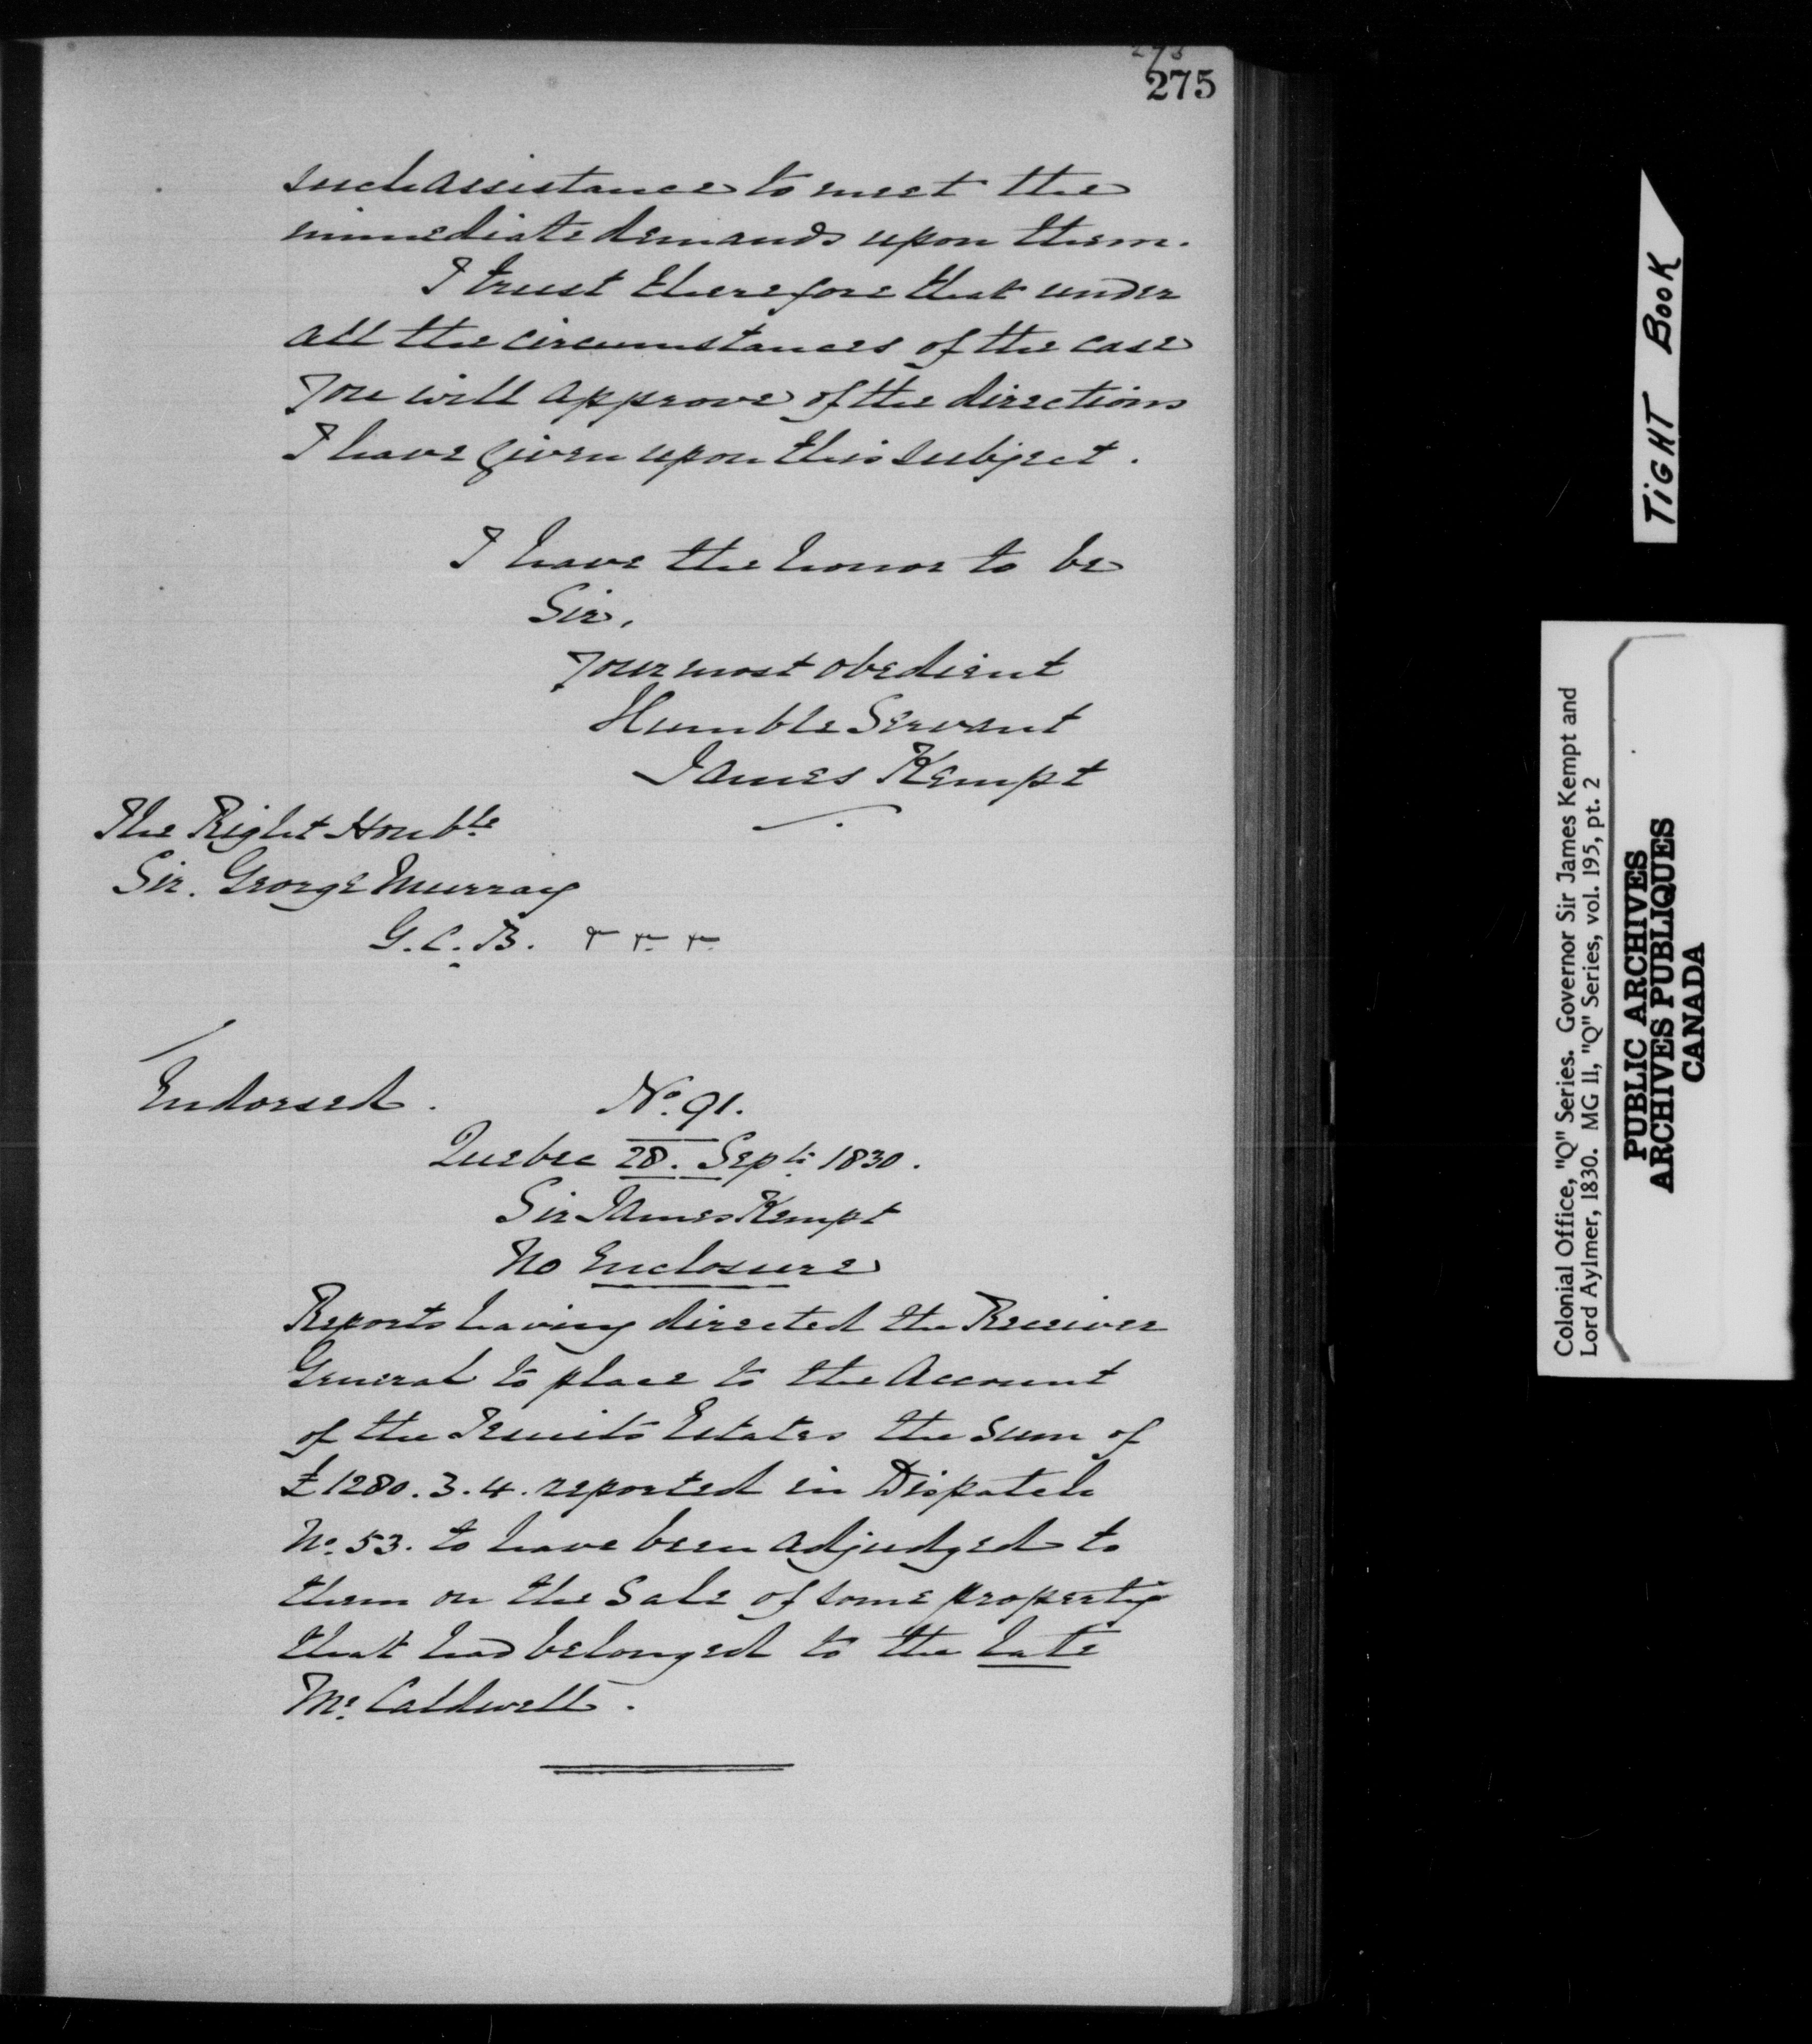 275
such assistance to meet the
immediate demands upon them.
I trust therefore that under
all the circumstances of the case
you will approve of the directions
I have given upon this subject.
I have the honor to be
Sir,
your most obedient
Humble Servant
James Kempt
The Right Honble
Sir. George Murray
G.C.B. &c. &c. &c.
Endorsed.
No. 91.
Quebec 28. Septr 1830.
Sir James Kempt
No Enclosure
Reports having directed the Receiver
General to place to the Account
of the Jesuits Estates the Sum of
£1280.3.4. reported in Dispatch
No. 53. to have been adjudged to
them on the Sale of some property
that had belonged to the late
Mr. Caldwell.
TIGHT BOOK
Colonial Office, "Q" Series. Governor Sir James Kempt and
Lord Aylmer, 1830. MG 11, "Q" Series, vol. 195, pt. 2
PUBLIC ARCHIVES
ARCHIVES PUBLIQUES
CANADA